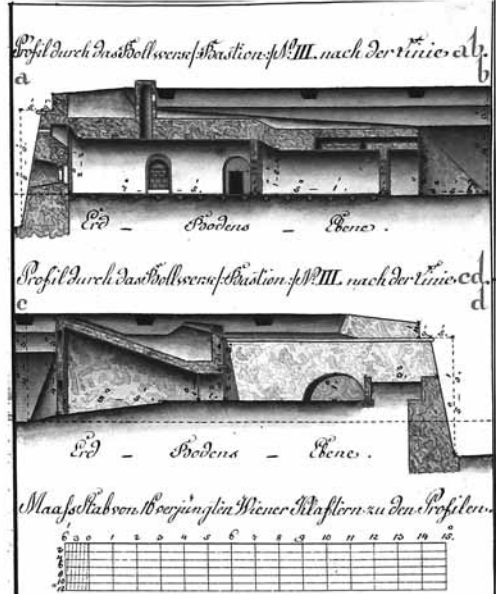 Profil durch das Bollwerk /:Bastion:/ No. III. nach der Linie ab.
a b
Erd - Bodens - Ebene.
Profil durch das Bollwerk /:Bastion:/ No. III. nach der Linie cd.
c d
Erd - Bodens - Ebene.
Maass Stab von 16 verjünglen Wiener Klaftern zu den Profilen.
6 3 0 1 2 3 4 5 6 7 8 9 10 11 12 13 14 15.